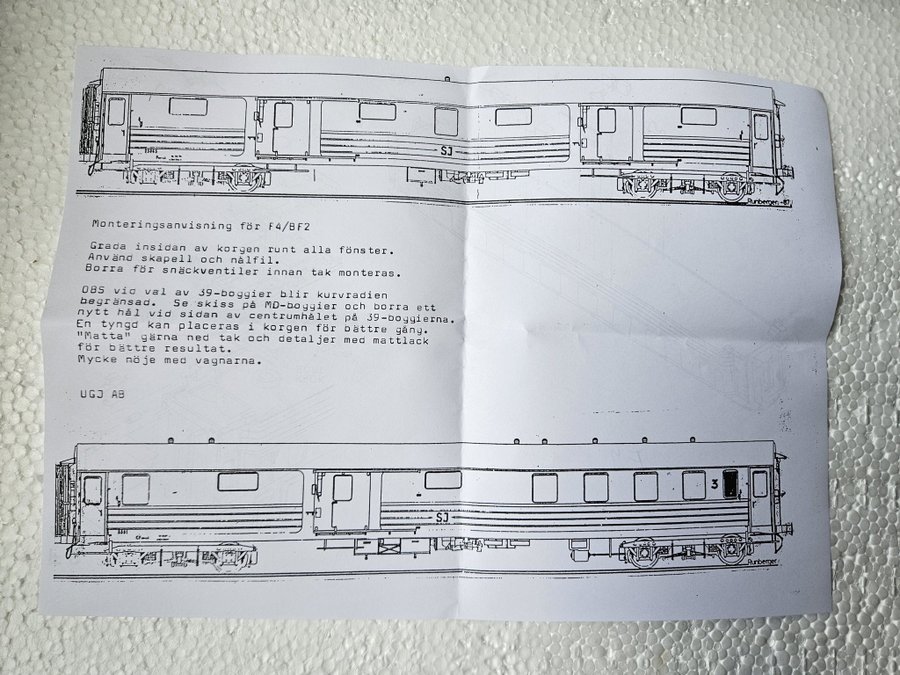 SJ
Runberger -87
Monteringsanvisning för F4/BF2
Grada insidan av korgen runt alla fönster.
Använd skapell och nålfil.
Borra för snäckventiler innan tak monteras.
OBS vid val av 39-boggier blir kurvradien
begränsad. Se skiss på MD-boggier och borra ett
nytt hål vid sidan av centrumhålet på 39-boggierna.
En tyngd kan placeras i korgen för bättre gång.
"Matta" gärna ned tak och detaljer med mattlack
för bättre resultat.
Mycke nöje med vagnarna.
UGJ AB
3
SJ
Runberger